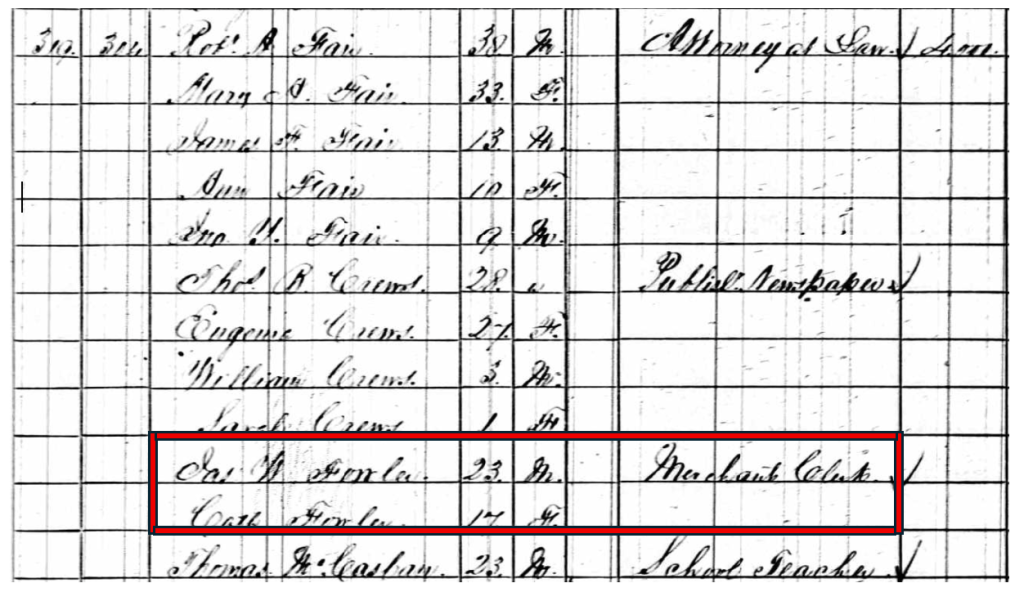 319. 304 Robt A Fair. 38 M. Attorney at Law 4,000.
Mary A. Fair. 33. F.
James F. Fair 13. M.
Ann Fair 10 F.
Jno. Y. Fair. 9 M.
Thos. B Crews. 28. " Publish. Newspaper
Eugenia Crews. 27. F.
William Crews. 3. M.
Sarah Crews 1 F
Jas W Fowler. 23. M. Merchants Clerk.
Cath Fowler. 17 F.
Thomas 23. M. School Teacher